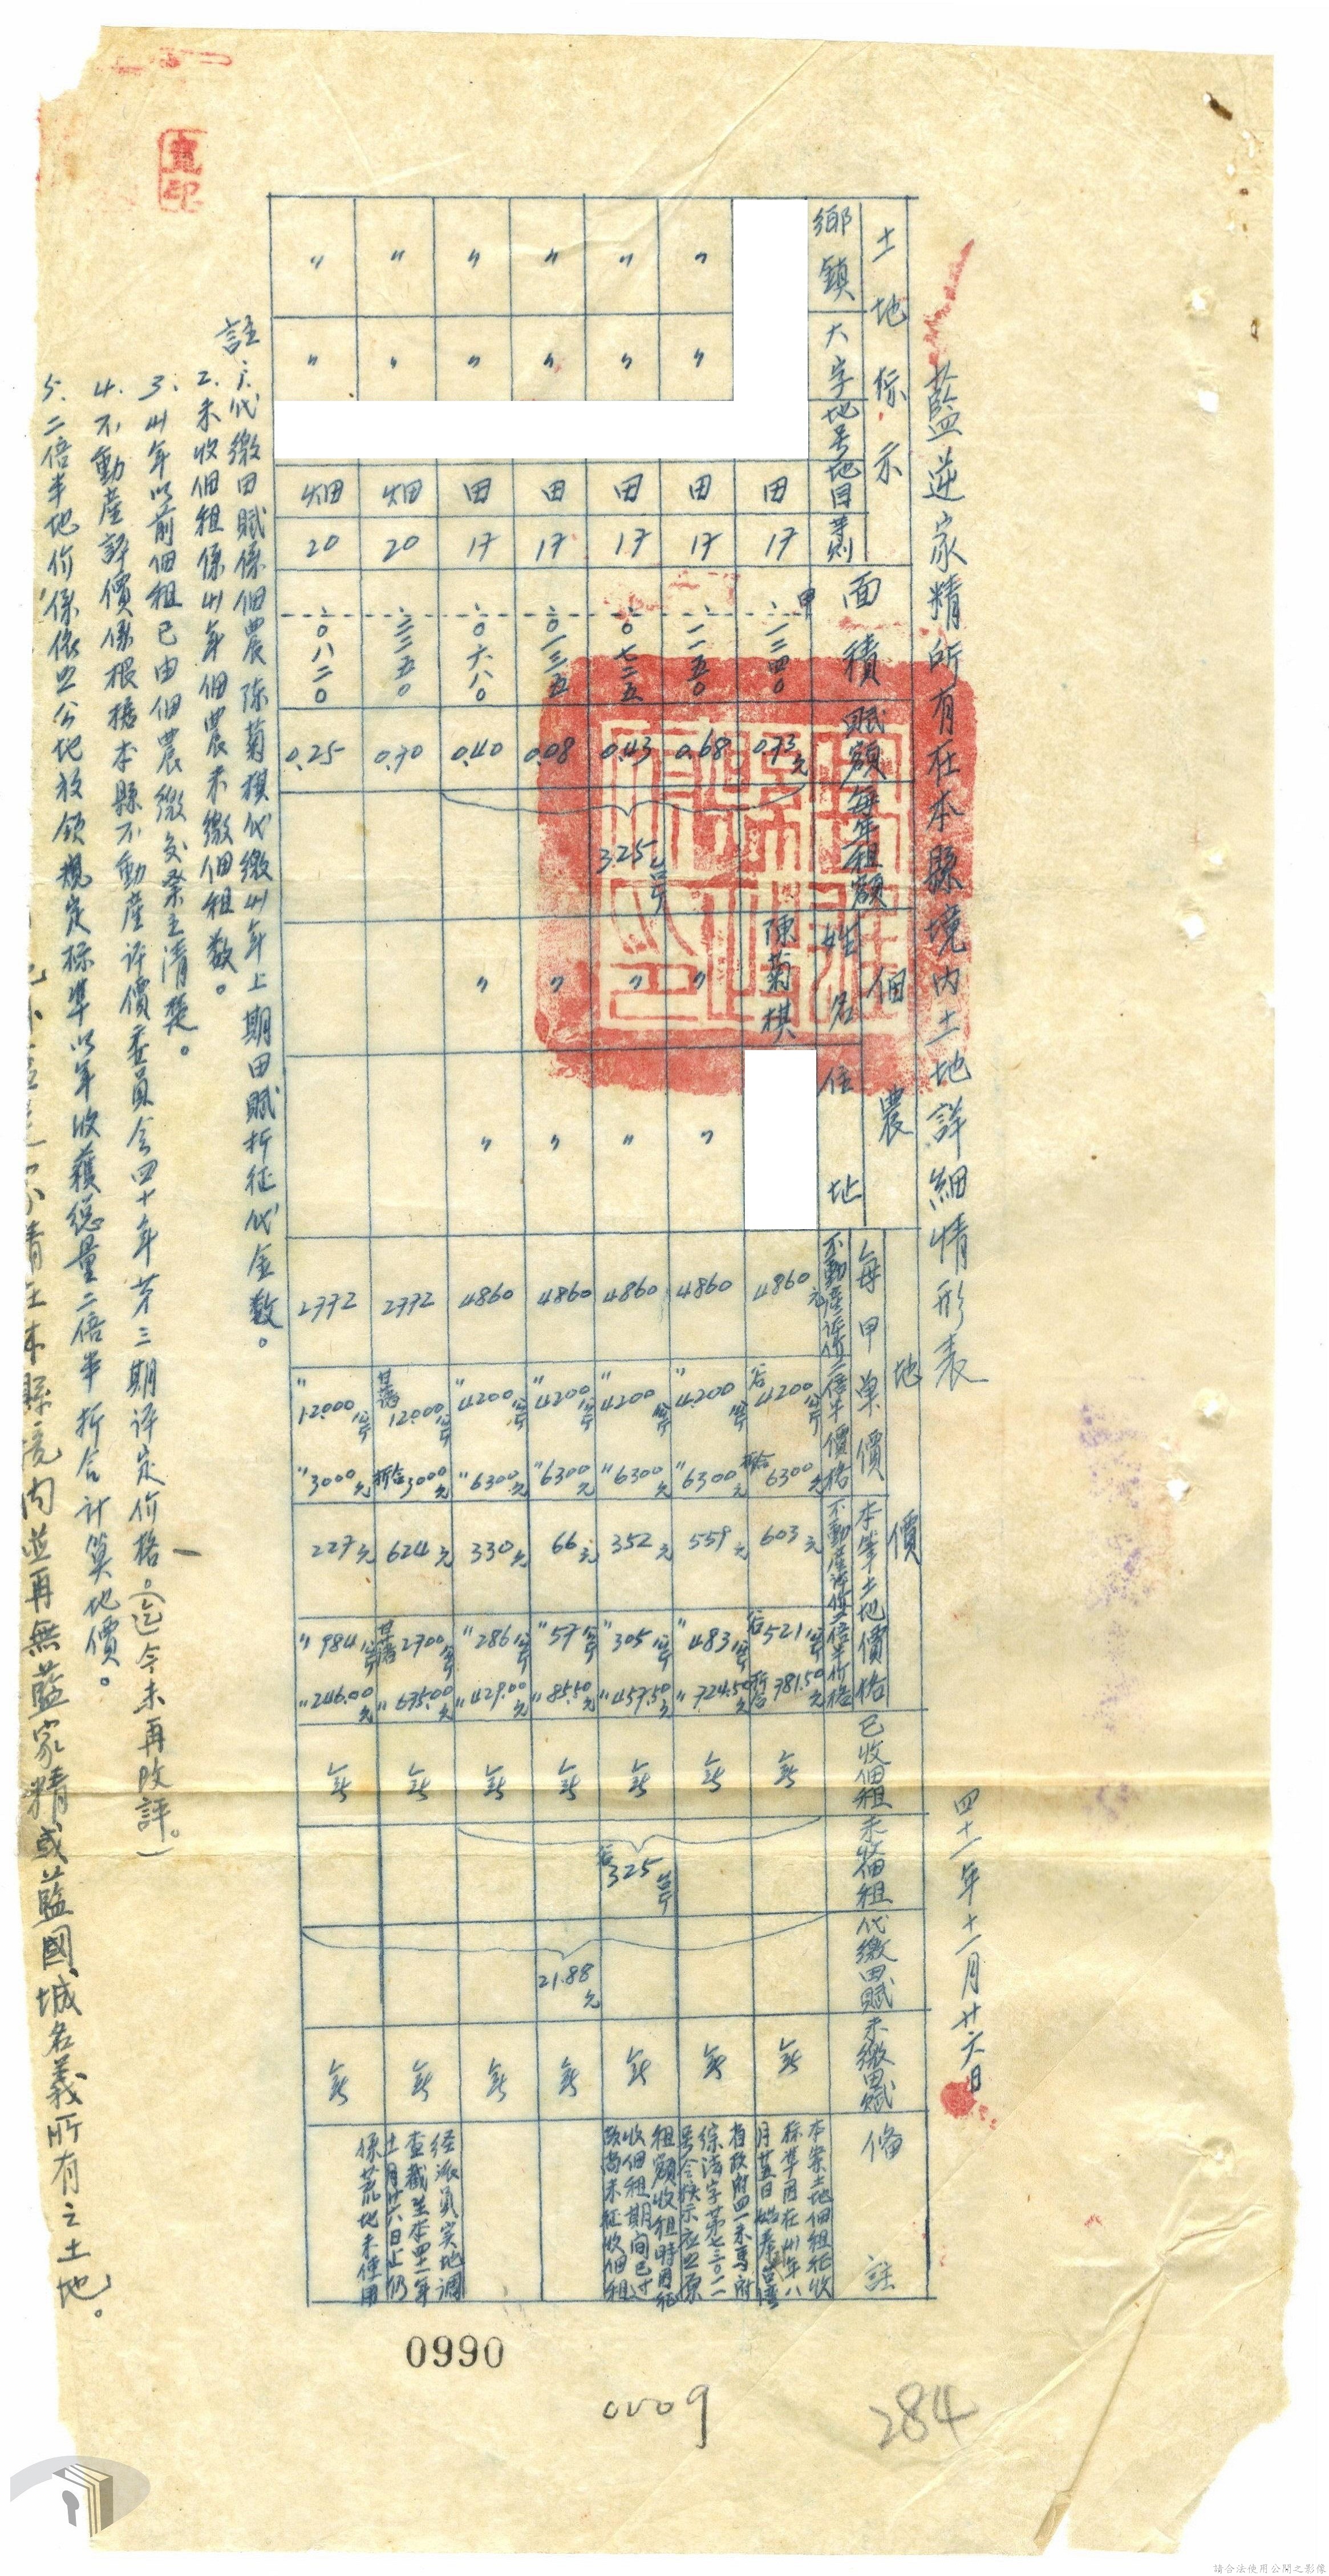 藍逆家精所有在本縣境內土地詳細情形表
四十一年十一月廿六日
土地标示
鄉鎮 大字 地号 地目 等則
面積
賦額
每年租額
佃農
姓名 住址
地價
每甲單價
不動產評價 二倍半價格
本筆土地價格
不動產評價 二倍半价格
已收佃租
未收佃租
代繳田賦
未繳田賦
備註
田 17 甲 一二四〇 0.73元 陳菊棋 4860元 谷4200公斤 折合6300元 603元 谷521公斤 折合781.50元 無 無
〃 〃 田 17 一一五〇 0.68 〃 〃 4860 〃4200公斤 〃6300元 559元 〃483公斤 〃724.50元 無 無
〃 〃 田 17 〇七二五 0.43 3.25台斤 〃 〃 4860 〃4200公斤 〃6300元 352元 〃305公斤 〃457.50元 無 谷325台斤 無
〃 〃 田 17 〇一三五 0.08 〃 〃 4860 〃4200公斤 〃6300元 66元 〃57公斤 〃85.50元 無 21.88元 無
〃 〃 田 17 〇六八〇 0.40 〃 〃 4860 〃4200公斤 〃6300元 330元 〃286公斤 〃429.00元 無 無
〃 〃 畑 20 二二五〇 0.70 2772 甘藷12000公斤 折合3000元 624元 甘藷2700公斤 〃675.00元 無 無
〃 〃 畑 20 〇八二〇 0.25 2772 〃12000公斤 〃3000元 227元 〃984公斤 〃246.00元 無 無
本案土地佃租征收
标準因在卅年八
月廿五日始奉台灣
省政府四一未馬府
綜法字第七三〇一一
号令核示应照原
租額收租時因征
收佃租期間已过
致尚未征收佃租
经派員实地調
查截至本四十一年
十一月廿六日止仍
係荒地未使用
註：1.代繳田賦係佃農陈菊棋代繳卅年上期田賦折征代金数。
2.未收佃租係卅年佃農未繳佃租数。
3.卅年以前佃租已由佃農繳交業主清楚。
4.不動產評價係根據本縣不動產评價委員会四十年第三期评定价格。（迄今未再改評。）
5.二倍半地价係依照公地放領規定标準以年收穫總量二倍半折合計算地價。
家精在本縣境內並再無藍家精或藍國城名義所有之土地。
0990
0009
284
請合法使用公開之影像